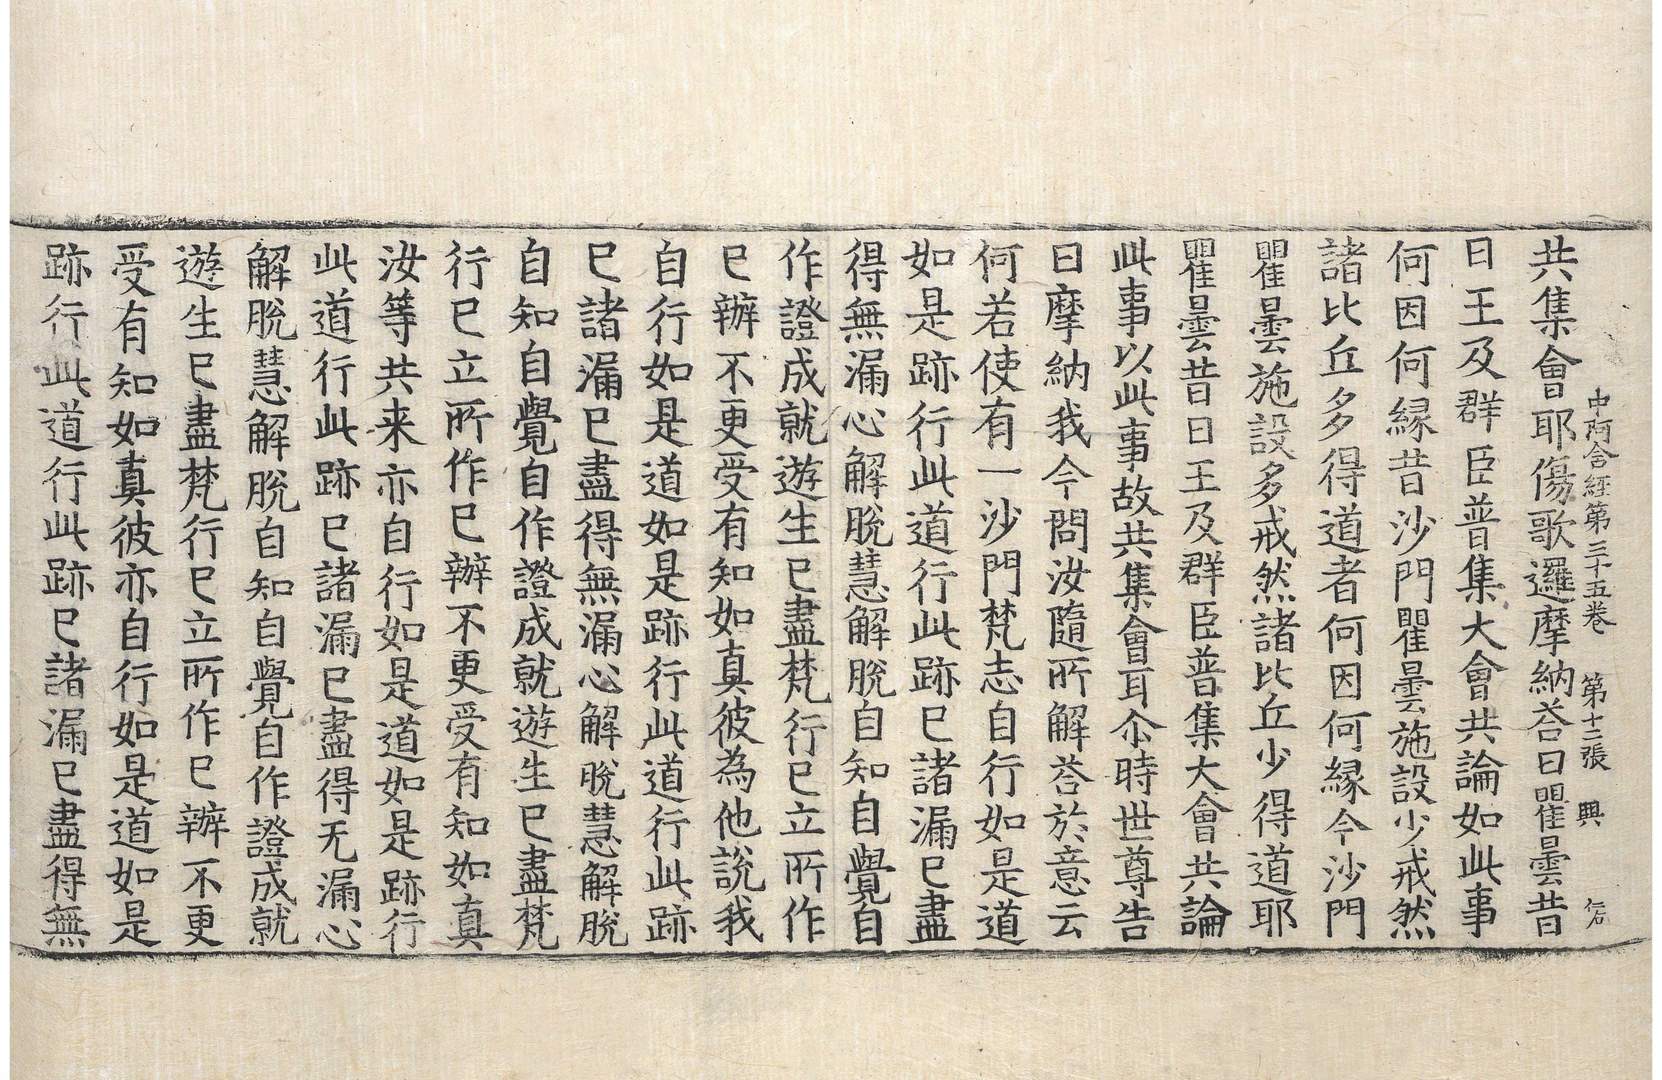 中阿含經第三十五卷　第十二張　興　仁石
共集會耶傷歌邏摩納荅曰瞿曇昔
日王及群臣普集大會共論如此事
何因何縁昔沙門瞿曇施設少戒然
諸比丘多得道者何因何縁今沙門
瞿曇施設多戒然諸比丘少得道耶
瞿曇昔日王及群臣普集大會共論
此事以此事故共集會耳尒時世尊告
曰摩納我今問汝隨所解荅於意云
何若使有一沙門梵志自行如是道
如是跡行此道行此跡已諸漏已盡
得無漏心解脫慧解脫自知自覺自
作證成就遊生已盡梵行已立所作
已辦不更受有知如真彼為他說我
自行如是道如是跡行此道行此跡
已諸漏已盡得無漏心解脫慧解脫
自知自覺自作證成就遊生已盡梵
行已立所作已辦不更受有知如真
汝等共来亦自行如是道如是跡行
此道行此跡已諸漏已盡得无漏心
解脫慧解脫自知自覺自作證成就
遊生已盡梵行已立所作已辦不更
受有知如真彼亦自行如是道如是
跡行此道行此跡已諸漏已盡得無